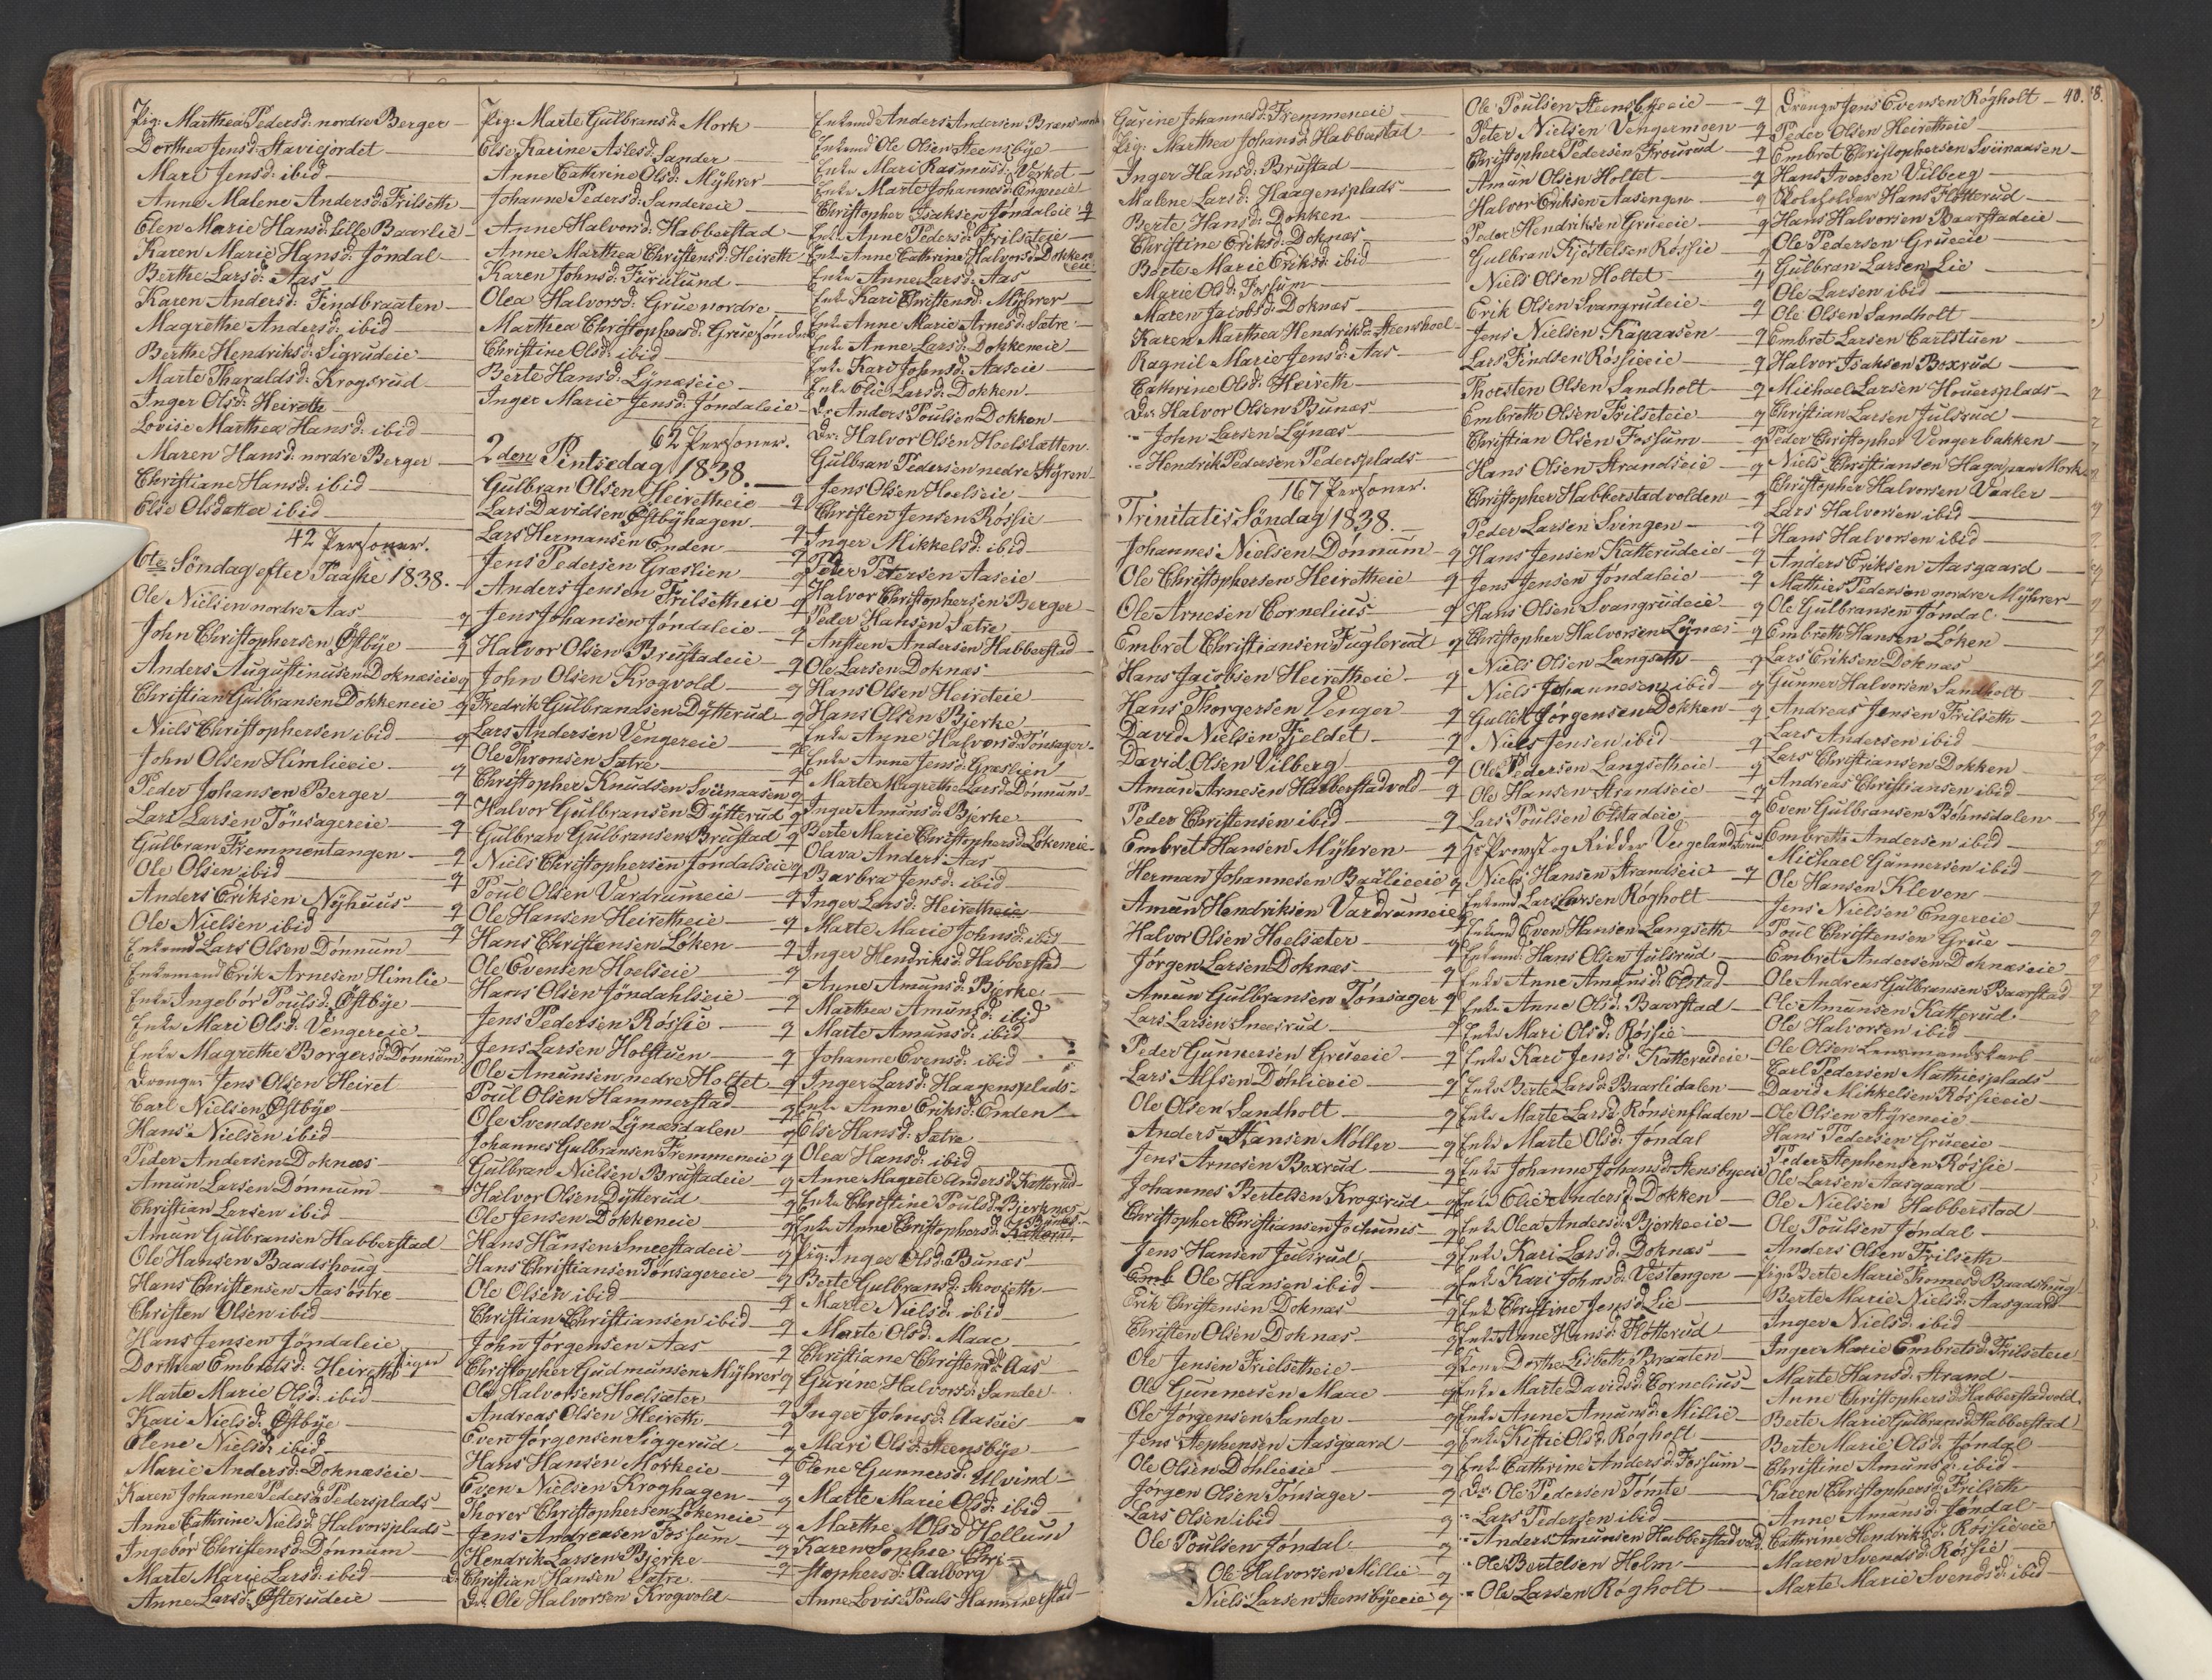 Pig: Marthea Pedersd: nordre Berger
Dorthea Jensd: Stavicjordet
Mari Jensd: ibid
Anne Malene Andersd: Frilseth
Elen Marie Hansd: lille Baarlie
Karen Marie Hansd: Jöndal
Berthe Larsd: Aas
Karen Andersd: Findbraaten
Magrethe Andersd: ibid
Berthe Hendriksd: Sigrudeie
Marte Tharaldsd: Krogsrud
Inger Olsd: Heireth
Lovise Marthea Hansd: ibid
Maren Hansd: nordre Berger
Christiane Hansd: ibid
Else Olsdatter ibid
42 Personer.
6te Söndag efter Paaske 1838.
Ole Nielsen nordre Aas
John Christophersen Östbÿe
Anders Augustinusen Doknæseie
Christian Gulbransen Dokkeneie
Niels Christophersen ibid
John Olsen Himlieeie
Peder Johansen Berger
Lars Larsen Tönsagereie
Gulbran Fremmentangen
Ole Olsen ibid
Anders Eriksen Nÿhuus
Ole Nielsen ibid
Enkemd Lars Olsen Dönnum
Enkemand Erik Arnesen Himlie
Enke Ingebór Poulsd: Östbÿe
Enke Mari Olsd: Vengereie
Enke Magrethe Borgersd: Dönnum
Drenger Jens Olsen Heiret
Carl Nielsen Östbÿe
Hans Nielsen ibid
Peder Andersen Doknæs
Amun Larsen Dönnum
Christian Larsen ibid
Amun Gulbransen Habberstad
Ole Hansen Baadshoug
Hans Christensen Aas östre
Christen Olsen ibid
Hans Jensen Jöndaleie
Dorthea Embretsd: Heireth Piger
Marte Marie Olsd: ibid
Kari Nielsd: Östbÿe
Olene Nielsd: ibid
Marie Andersd: Doknæseie
Karen Johanne Pedersd: Pedersplads
Anne Cathrine Nielsd: Halvorsplads
Ingebor Christensd: Dönnum
Marte Marie Larsd: ibid
Anne Larsd: Österudeie
Pig: Marte Gulbransd: Mork
Else Karine Aslesd: Sander
Anne Cathrine Olsd: Mÿhrer
Johanne Pedersd: Sandereie
Anne Halvorsd: Habberstad
Anne Marthea Christensd: Heireth
Karen Johnsd: Furulund
Olea Halvorsd: Grue nordre
Marthea Christophersd: Grue sönder
Christine Olsd: ibid
Berte Hansd: Lÿnæseie
Inger Marie Jensd: Jöndaleie
62 Personer.
2den Pintsedag 1838.
Gulbran Olsen Heiretheie
Lars Davidsen Östbÿhagen
Lars Hermansen Enden
Jens Pedersen Græslien
Anders Jensen Frilsetheie
Jens Johansen Jöndaleie
Halvor Olsen Brustadeie
John Olsen Krogvold
Fredrik Gulbrandsen Dÿtterud
Lars Andersen Vengereie
Ole Thronsen Sætre
Christopher Knudsen Sviinaasen
Halvor Gulbransen Dÿtterud
Gulbran Gulbransen Brustad
Niels Christophersen Jöndalseie
Poul Olsen Vardrumeie
Ole Hansen Heiretheie
Hans Christensen Löken
Ole Evensen Hoelseie
Hans Olsen Jöndahlseie
Jens Pedersen Róssie
Jens Larsen Holstuen
Ole Amunsen nedre Holtet
Poul Olsen Hammerstad
Ole Svendsen Lÿnæsdalen
Johannes Gulbransen Fremmeneie
Gulbran Nielsen Brustadeie
Halvor Olsen Dÿtterud
Ole Jensen Dokkeneie
Hans Hansen Smeestadeie
Hans Christiansen Tonsagereie
Ole Olsen ibid
Christian Christiansen ibid
John Jörgensen Aas
Christopher Gudmunsen Mÿhrer
Ole Halvorsen Hoelsæter
Andreas Olsen Heireth
Even Jörgensen Siggerud
Hans Hansen Morkeie
Even Nielsen Kroghagen
Thorer Christophersen Lökeneie
Jens Andreasen Fossum
Hendrik Larsen Bjerke
D. Christian Hansen Sætre
Dr: Ole Halvorsen Krogvold
Enkemd Anders Andersen Brænsmork
Enkemd Ole Olsen Steensbÿe
Enke Mari Rasmusd: Verket
Enke Marte Johannesd: Engereie
Christopher Isaksen Jöndaleie
Enke Anne Pedersd: Frilseteie
Enke Anne Cathrine Halvorsd: Dokken
eie
Enke Anne Larsd: Aas
Enke Kari Christensd: Mÿhrer
Enke Anne Marie Arnesd: Sætre
Enke Anne Larsd: Dokkeneie
Enke Kari Johnsd: Aaseie
Enke Olie Larsd: Dokken
Dr: Anders Poulsen Dokken
Dr: Halvor Olsen Hoelslætten
Gulbran Pedersen nedre Stÿren
Jens Olsen Hoelseie
Christen Jensen Róssie
Inger Mikkelsd: ibid
Peter Petersen Aaseie
Halvor Christophersen Berger
Peder Hansen Sætre
Ansteen Andersen Habberstad
Ole Larsen Doknæs
Hans Olsen Heireteie
Hans Olsen Bjerke
Enke Anne Halvorsd: Tónsager
Enke Anne Jensd: Græslien
Marte Magrethe Larsd: Dönnum
Inger Amunsd: Bjerke
Berte Marie Christophersd: Lökeneie
Olava Andersd: Aas
Barbra Jensd: ibid
Inger Larsd: Heiretheie
Marte Marie Johnsd: ibid
Inger Hendriksd: Habberstad
Anne Amunsd: Bjerke
Marthea Amunsd: ibid
Marte Amunsd: ibid
Johanne Evensd: ibid
Inger Larsd: Haagensplads
Enke Anne Eriksd: Enden
Else Hansd: Sætre
Olea Hansd: ibid
Anne Magrete Andersd: Katterud
Enke Christine Poulsd: Bjerknæs
Bunæs
Enke Anne Christophersd: Katterud
Pig: Inger Olsd: Bunæs
Berte Gulbransd: Skovseth
Marte Nielsd: ibid
Marte Olsd: Maae
Christiane Christensd: Aas
Gurine Halvorsd: Sander
Inger Johnsd: Aaseie
Mari Olsd: Steensbÿe
Elene Gunnersd: Ulvind
Marte Marie Olsd: ibid
Marthe Olsd: Hellum
Karen Sophie Chri-
stophersd: Aalborg
Anne Lovise Pouls Hammerstad
Gurine Johannesd: Fremmeneie
Pig: Marthea Johansd: Habberstad
Inger Hansd: Brustad
Malene Larsd: Haagensplads
Berte Hansd: Dokken
Christine Eriksd: Doknæs
Berte Marie Eriksd: ibid
Marie Olsd: Fossum
Maren Jacobsd: Doknæs
Karen Marthea Hendriksd: Steenshoel
Ragnil Marie Jensd: Aas
Cathrine Olsd: Heireth
Dr: Halvor Olsen Bunæs
" John Larsen Lÿnæs
" Hendrik Pedersen Pedersplads
167 Personer.
Trinitatis Söndag 1838.
Johannes Nielsen Dónnum
Ole Christophersen Heiretheie
Ole Arnesen Cornelius
Embret Christiansen Fuglerud
Hans Jacobsen Heiretheie
Hans Thorgersen Venger
David Nielsen Fjeldet
David Olsen Vilberg
Amun Arnesen Habberstadvold
Peder Christensen ibid
Embret Hansen Mÿhren
Herman Johannesen Baarlieeie
Amun Hendriksen Vardrumeie
Halvor Olsen Hoelsæter
Jörgen Larsen Doknæs
Amun Gulbransen Tónsager
Lars Larsen Sneesrud
Peder Gunnersen Grueeie
Lars Alfsen Döhlieeie
Ole Olsen Sandholt
Anders Hansen Möller
Jens Arnesen Boxrud
Johannes Bertelsen Krogsrud
Christopher Christiansen Jochums
Jens Hansen Julsrud
Emb Ole Hansen ibid
Erik Christensen Doknæs
Christen Olsen Doknæs
Ole Jensen Frielsetheie
Ole Gunnersen Maae
Ole Jörgensen Sander
Jens Stephensen Aasgaard
Ole Olsen Döhlieeie
Jörgen Olsen Tónsager
Lars Olsen ibid
Ole Poulsen Jöndal
Ole Halvorsen Millie
Niels Larsen Steensbÿeeie
Ole Poulsen Steensbÿeeie
Peter Nielsen Vengermoen
Christopher Pedersen Frourud
Amun Olsen Holtet
Halvor Eriksen Aasengen
Peder Hendriksen Grueeie
Gulbran Kjóstelsen Róssie
Niels Olsen Holtet
Erik Olsen Svangrudeie
Jens Nielsen Kapaasen
Lars Findsen Róssieeie
Thorsten Olsen Sandholt
Embreth Olsen Frilseteie
Christian Olsen Fossum
Hans Olsen Strandseie
Christopher Habberstadvolden
Peder Larsen Svingen
Hans Jensen Katterudeie
Jens Jensen Jöndaleie
Hans Olsen Svangrudeie
Christopher Halvorsen Lÿnæs
Niels Olsen Langseth
Niels Johannesen ibid
Gullik Jörgensen Dokken
Niels Jensen ibid
Ole Pedersen Langsetheie
Ole Hansen Strandseie
Lars Poulsen Olstadeie
Hr Provst og Ridder Vergeland
Niels Hansen Strandseie
Enkemd Lars Larsen Rógholt
Enkemd Even Hansen Langseth
Enkemd: Hans Olsen Julsrud
Enke Anne Amunsd: Olstad
Enke Anne Olsd: Baarstad
Enke Mari Olsd: Róssie
Enke Kari Jensd: Katterudeie
Enke Berte Larsd: Baarlidalen
Enke Marte Larsd: Rónsenfladen
Enke Marte Olsd: Jöndal
Enke Johanne Johansd: Stensbyeeie
Enke Olie Andersd: Dokken
Enke Olea Andersd: Bjerkeeie
Enke Kari Larsd: Doknæs
Enke Kari Johnsd: Vestengen
Enke Christine Jensd: Lie
Enke Anne Hansd: Flötterud
Kone Dorthe Lisbeth Braaten
Enke Marte Davidsd: Cornelius
Enke Anne Amunsd: Millie
Enke Kistie Olsd: Rógholt
Enke Cathrine Andersd: Fossum
Dr: Ole Pedersen Tömte
" Lars Pedersen ibid
" Anders Amunsen Habberstadvold
" Ole Bertelsen Holm
" Ole Larsen Rógholt
Drenger Jens Evensen Rógholt 40.
Peder Olsen Heiretheie
Embret Christophersen Sviinaasen
Hans Iversen Vilberg
Skoleholder Hans Flótterud
Hans Halvorsen Baarstadeie
Ole Pedersen Grueeie
Gulbran Larsen Lie
Ole Larsen ibid
Ole Olsen Sandholt
Embret Larsen Carlstuen
Halvor Isaksen Boxrud
Michael Larsen Houersplads
Christian Larsen Julsrud
Peder Christopher Vengerbakken
Niels Christiansen Hagen paa Mork
Christopher Halvorsen Vaaler
Lars Halvorsen ibid
Hans Halvorsen ibid
Anders Eriksen Aasgaard
Mathies Pedersen nordre Mÿhrer
Ole Gulbransen Jöndal
Embreth Hansen Löken
Lars Eriksen Doknæs
Gunner Halvorsen Sandholt
Andreas Jensen Frilseth
Lars Andersen ibid
Lars Christiansen Dokken
Andreas Christiansen ibid
Even Gulbransen Böhnsdalen
Embreth Andersen ibid
Michael Gunnersen ibid
Ole Hansen Kleven
Jens Nielsen Engereie
Poul Christensen Grue
Embret Andersen Doknæseie
Ole Andreas Gulbransen Baarstad
Ole Amunsen Katterud
Ole Halvorsen ibid
Ole Olsen Lensmandskarl
Carl Pedersen Mathiesplads
David Mikkelsen Róssieeie
Ole Olsen Stÿreneie
Hans Pedersen Grueeie
Peder Stephensen Róssie
Ole Larsen Aasgaard
Ole Nielsen Habberstad
Ole Poulsen Jöndal
Anders Olsen Frilseth
Pig: Berte Marie Thomesd: Baadshoug
Berte Marie Nielsd: Aasgaard
Inger Nielsd: ibid
Inger Marie Embretsd: Frilseteie
Marte Hansd: Strand
Anne Christophersd: Habberstadvold
Berte Marie Gulbransd: Habberstad
Berte Marie Olsd: Jöndal
Christine Amunsd: ibid
Karen Christophersd: Frilseth
Anne Amunsd: Jöndal
Cathrine Hendriksd: Róssieeie
Maren Svendsd: Róssie
Marte Marie Svendsd: ibid